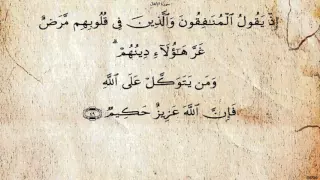 سورة الأنفال
إِذْ يَقُولُ الْمُنَافِقُونَ وَالَّذِينَ فِي قُلُوبِهِم مَّرَضٌ
غَرَّ هَٰؤُلَاءِ دِينُهُمْ ۗ
وَمَن يَتَوَكَّلْ عَلَى اللَّهِ
فَإِنَّ اللَّهَ عَزِيزٌ حَكِيمٌ ﴿٤٩﴾